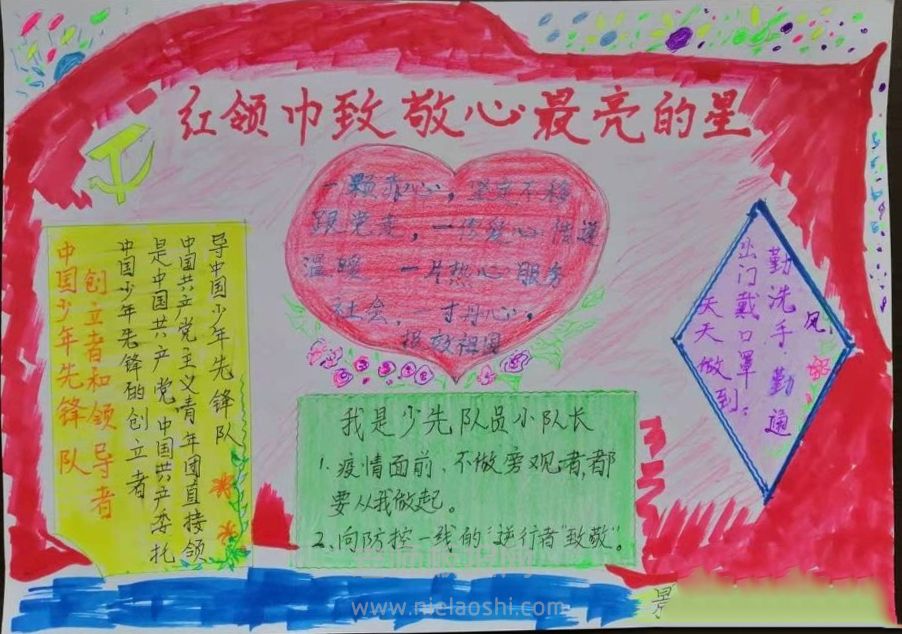 红领巾致敬心最亮的星
一颗赤心，坚定不移
跟党走，一传爱心传递
温暖 一片热心服务
社会，一寸丹心，
报效祖国
中国少年先锋队
创立者和领导者
中国少年先锋的创立者
是中国共产党中国共产委托
中国共产党主义青年团直接领
导中国少年先锋队
我是少先队员小队长
1. 疫情面前、不做旁观者，都
要从我做起。
2、向防控一线的"逆行者"致敬"。
勤洗手勤通
风，
出门戴口罩；
天天做到。
www.nielaoshi.com